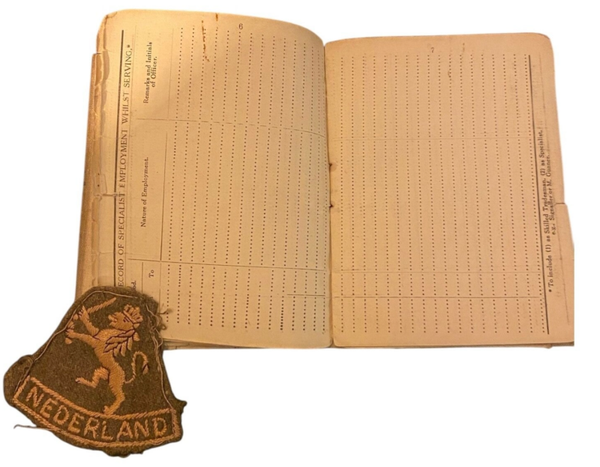 6
RECORD OF SPECIALIST EMPLOYMENT WHILST SERVING.*
To
Nature of Employment.
Remarks and Initials
of Officer.
7
* To include (1) as Skilled Tradesman, (2) as Specialist,
e.g., Signaller or M. Gunner.
NEDERLAND